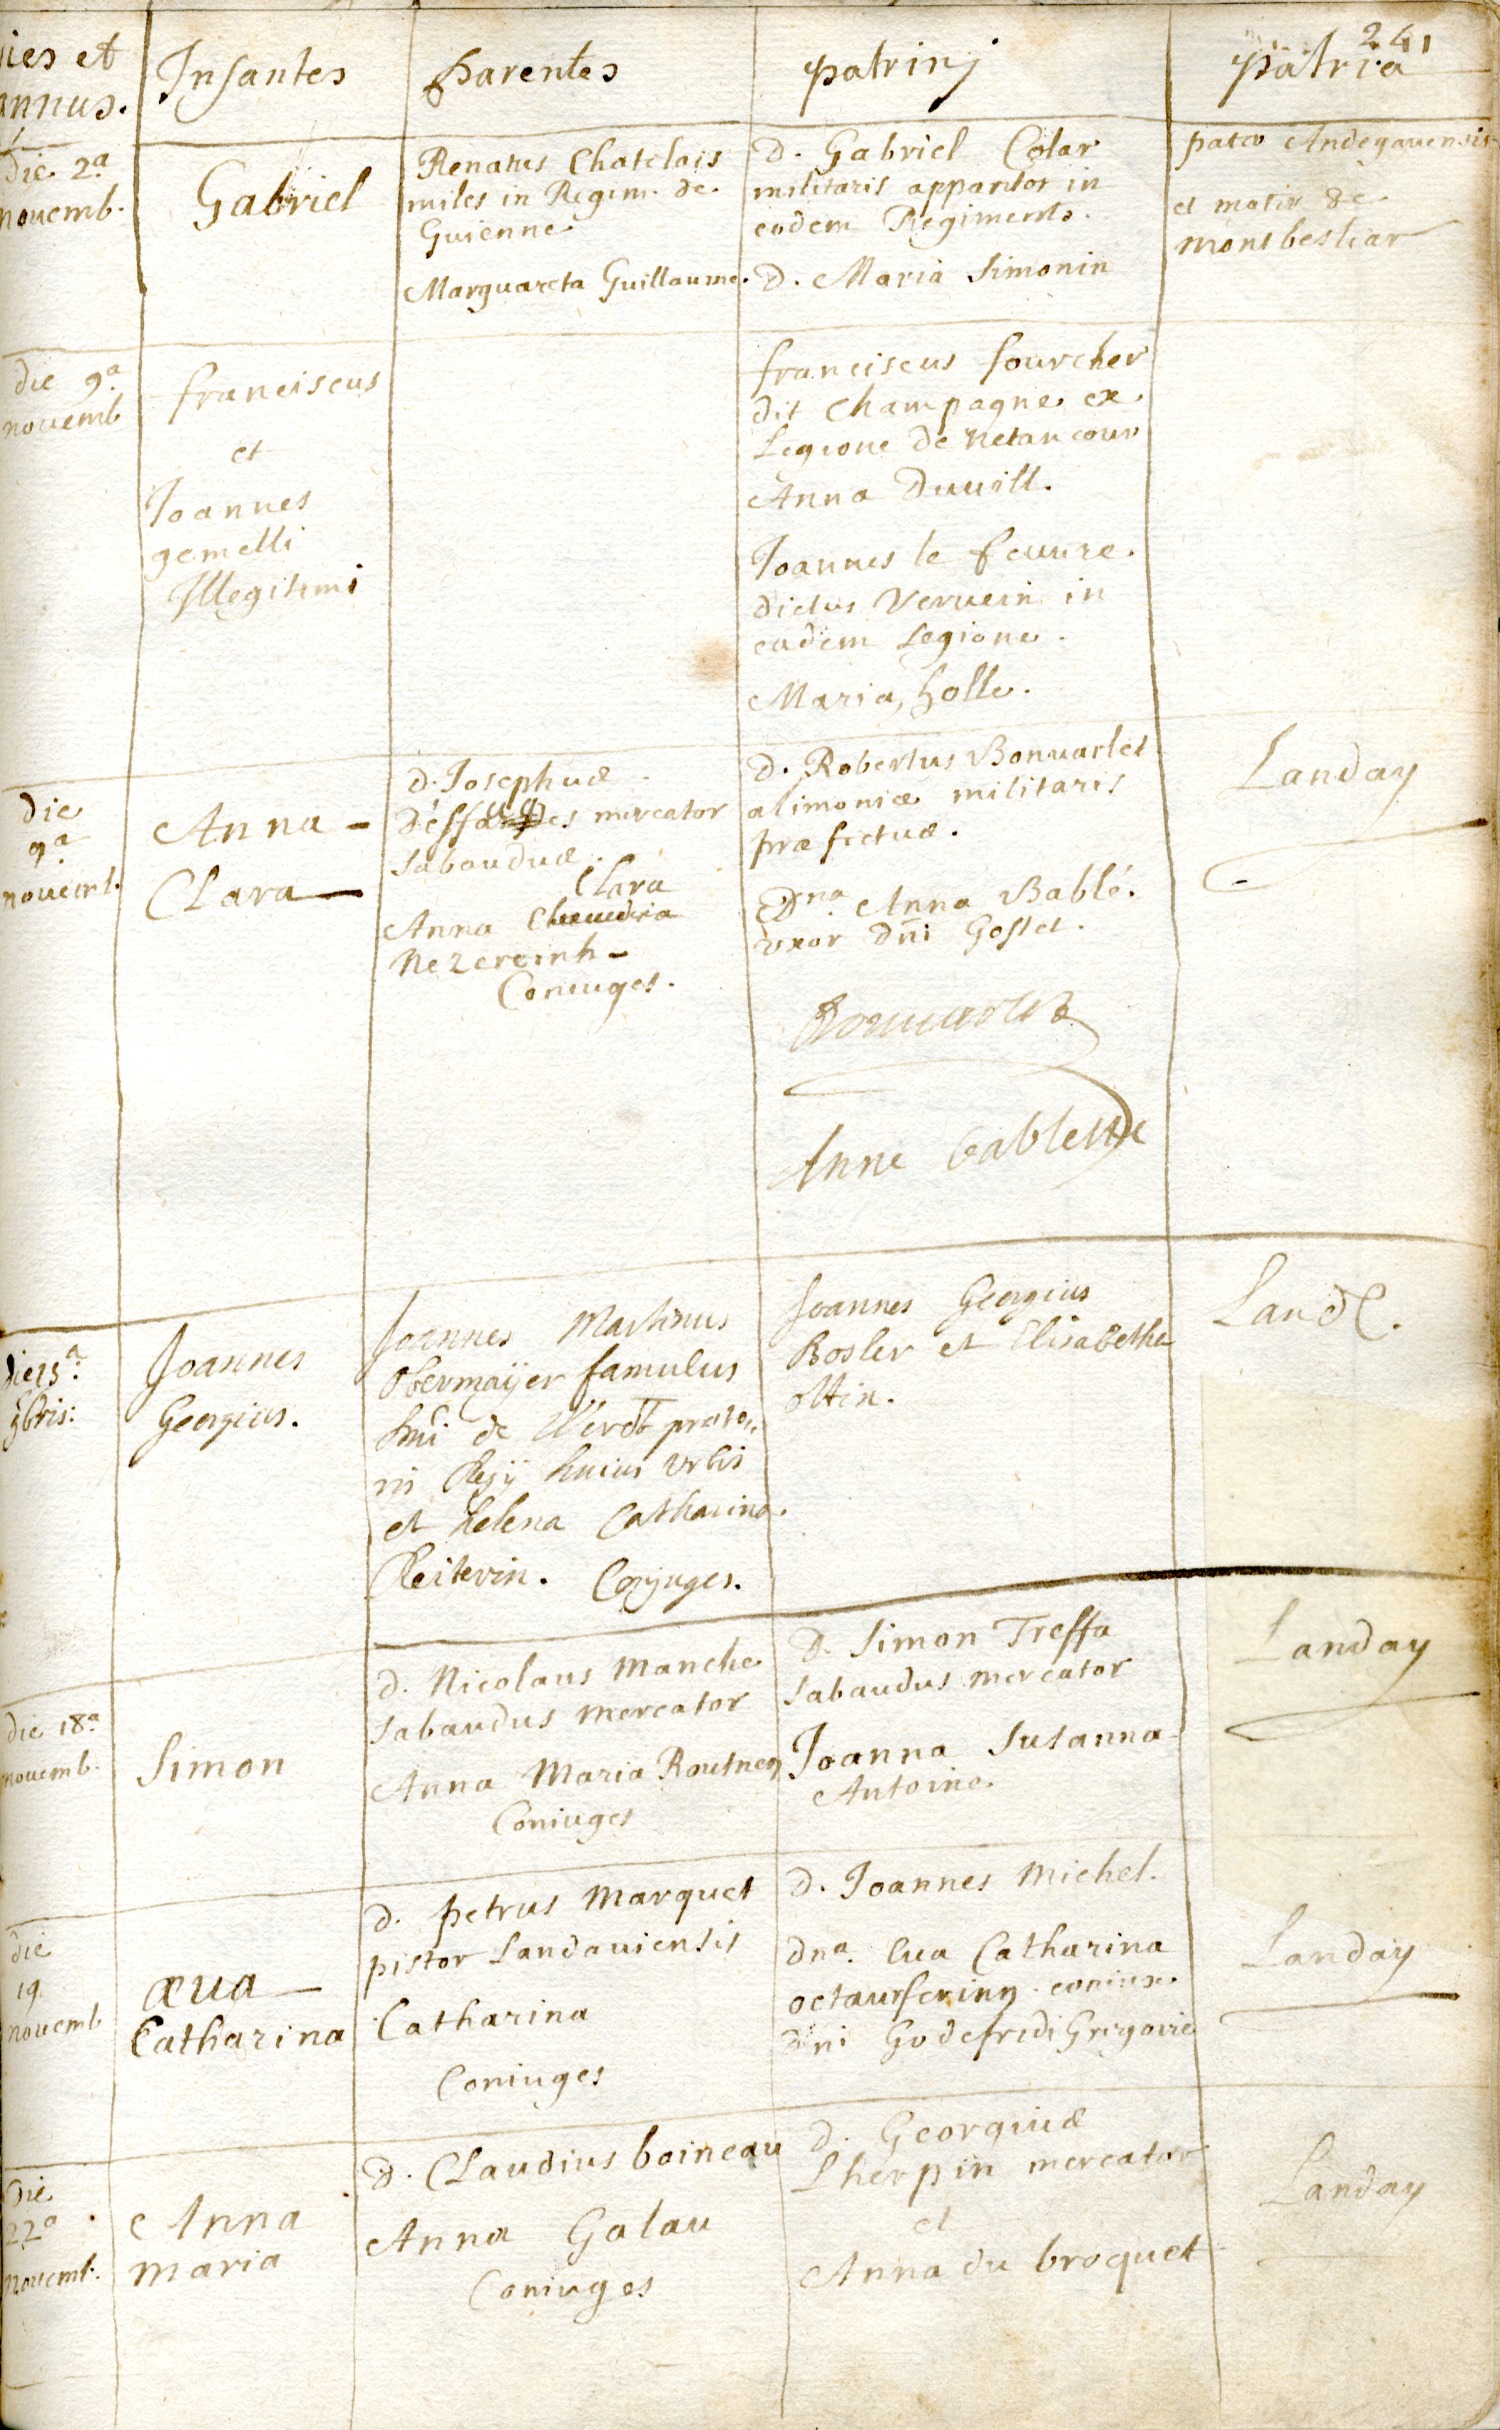 241
dies et
annus.
Infantes
parentes
patrinj
patria
die 2a
nouemb.
Gabriel
Renatus Chatelais
miles in Regim. de
Guienne
Marguareta Guillaume.
D. Gabriel Colar
militaris apparitor in
eodem Regimento.
D. Maria Simonin
pater Andegauensis
et mater de
Montbesliar
die 9a
nouemb
franciscus
et
Joannes
gemelli
Illegitimi
franciscus fourcher
dit Champagne ex
Legione de Netancour
Anna Duuill.
Joannes le feuure.
dictus Veruein in
eadem Legione.
Maria, holle.
die
9a
nouemb.
Anna -
Clara -
d. Josephus
mercator
Sabaudus.
Clara
Anna
Nezereinh -
Coniuges.
D. Robertus Bonuarlet
alimoniæ militaris
præfectus.
Dna Anna Bablé.
vxor dni Goslet.
Bonuarlet
Anne bablette
Landay
die 15a.
9bris:
Joannes
Georgius.
Joannes Martinus
Obermaÿer famulus
dni de Werdt præto,,
ris Regÿ huius vrbis
et Helena Catharina
Reiterin. Conjuges.
Joannes Georgius
Bosler et Elisabetha
ottin.
Land.
die 18a
nouemb.
Simon
d. Nicolaus Manche
Sabaudus mercator
Anna Maria Routnen
Coniuges
D. Simon Treffa
Sabaudus mercator
Joanna Susanna
Antoine.
Landay
die
19
nouemb
æua -
Catharina
d. petrus Marquet
pistor Landauiensis
Catharina
Coniuges
d. Joannes Michel.
dna. Eua Catharina
coniux.
dni Godefridi Grigorie
Landay
die
22a
nouemb.
Anna
Maria
D. Claudius boineau
Anna Galau
Coniuges
d. Georgius
Lherpin mercator
et
Anna du broquet
Landay